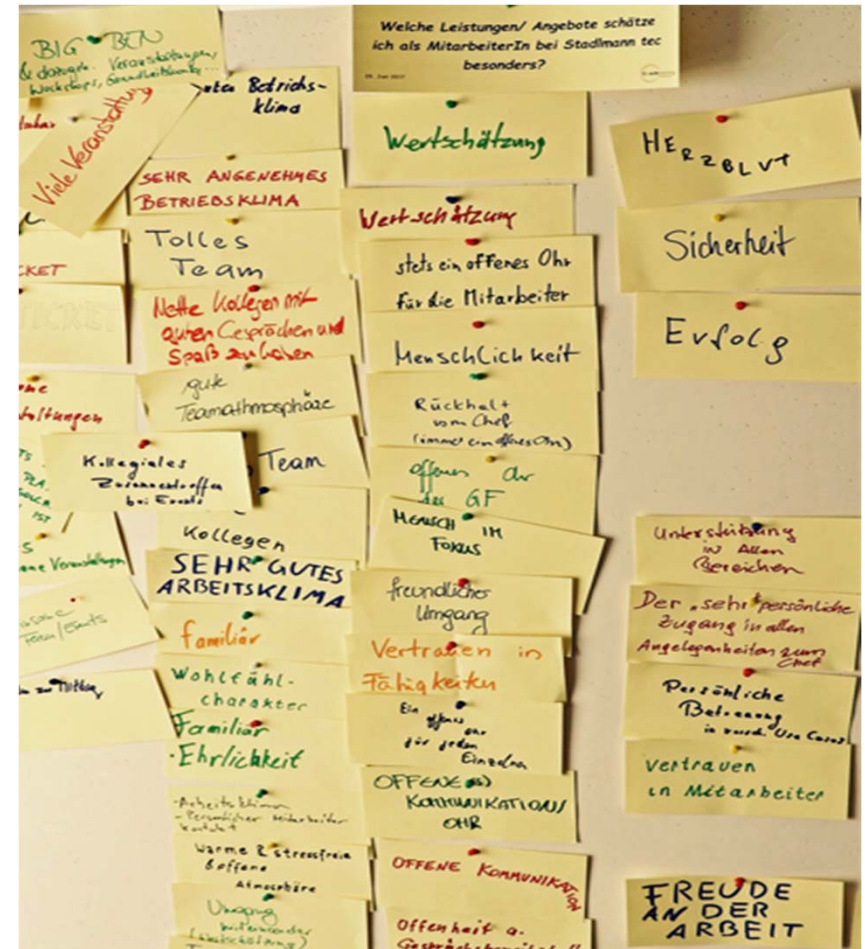 Welche Leistungen/ Angebote schätze
ich als MitarbeiterIn bei Stadlmann tec
besonders?
BIG BEN
Workshops,
Viele Veranstaltung
Betriebs-
klima
SEHR ANGENEHMES
BETRIEBSKLIMA
Tolles
Team
Nette Kollegen mit
guten Gesprächen und
Spaß zu haben
gute
Teamathmosphäre
Kollegiales
Zusammentreffen
bei Events
Team
Kollegen
SEHR GUTES
ARBEITSKLIMA
familiär
Wohlfühl-
charakter
Familiär
-Ehrlichkeit
-Arbeitsklima
-Persönlicher Mitarbeiter
kontakt
Warme & stressfreie
& offene
Atmosphäre
Umgang
miteinander
Wertschätzung
Wertschätzung
stets ein offenes Ohr
für die Mitarbeiter
Menschlichkeit
Rückhalt
vom Chef
(immer ein offenes Ohr)
offenes Ohr
der GF
MENSCH IM
FOKUS
freundlicher
Umgang
Vertrauen in
Fähigkeiten
Ein
offenes
Ohr
für jeden
Einzelnen
OFFENE(S)
KOMMUNIKATION/
OHR
OFFENE KOMMUNIKATION
Offenheit u.
HERZBLUT
Sicherheit
Erfolg
Unterstützung
in Allen
Bereichen
Der "sehr" persönliche
Zugang in allen
Angelegenheiten zum
Chef
Persönliche
Betreuung
in versch. Use Cases
vertrauen
in Mitarbeiter
FREUDE
AN DER
ARBEIT